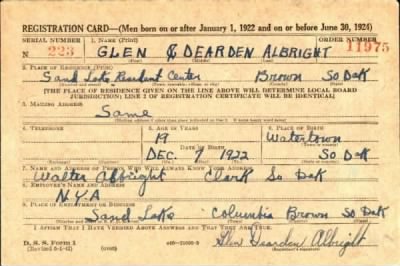 REGISTRATION CARD—(Men born on or after January 1, 1922 and on or before June 30, 1924)
SERIAL NUMBER 1. NAME (Print) ORDER NUMBER
N 223 GLEN DEARDEN ALBRIGHT 11975
2. PLACE OF RESIDENCE (Print)
Sand Lake Resident Center Brown So Dak
[THE PLACE OF RESIDENCE GIVEN ON THE LINE ABOVE WILL DETERMINE LOCAL BOARD
JURISDICTION; LINE 2 OF REGISTRATION CERTIFICATE WILL BE IDENTICAL]
3. MAILING ADDRESS
Same
4. TELEPHONE 5. AGE IN YEARS 6. PLACE OF BIRTH
19 Watertown
DEC. 1922 So Dak
7. NAME AND ADDRESS OF PERSON WHO WILL ALWAYS KNOW YOUR ADDRESS
Walter Albright Clark So Dak
8. EMPLOYER'S NAME AND ADDRESS
N.Y.A
9. PLACE OF EMPLOYMENT OR BUSINESS
Sand Lake Columbia Brown So Dak
I AFFIRM THAT I HAVE VERIFIED ABOVE ANSWERS AND THAT THEY ARE TRUE.
D. S. S. Form 1 (over) Glen Dearden Albright